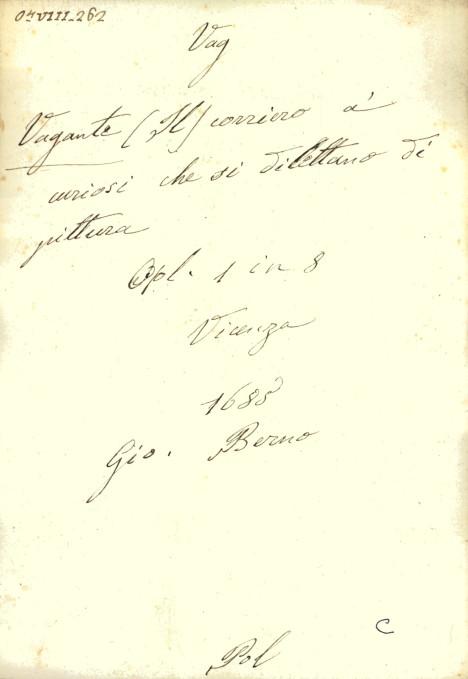 O⁴ VIII_262
Vag
Vagante (Il) corriero a'
curiosi che si dilettano di
pittura
Opl. 1 in 8
Vicenza
1688
Gio. Berno
C
Pol